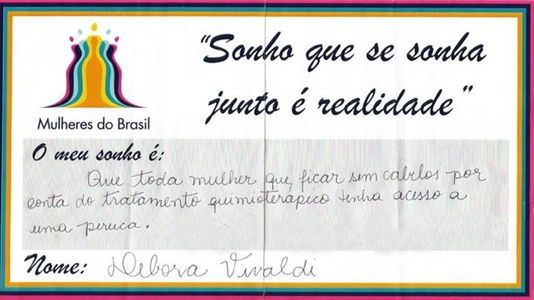 Mulheres do Brasil
"Sonho que se sonha
junto é realidade"
O meu sonho é:
Que toda mulher que ficar sem cabelos por
conta do tratamento quimioterápico tenha acesso a
uma peruca.
Nome: Debora Vivaldi